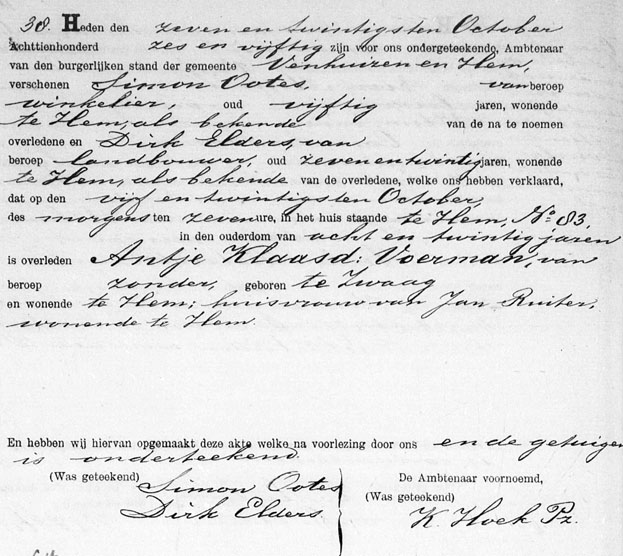 38. Heden den zeven en twintigsten October
Achttienhonderd zes en vijftig zijn voor ons ondergeteekende, Ambtenaar
van den burgerlijken stand der gemeente Venhuizen en Hem,
verschenen Simon Ootes, van beroep
winkelier, oud vijftig jaren, wonende
te Hem, als bekende van de na te noemen
overledene en Dirk Elders, van
beroep landbouwer, oud zeven en twintig jaren, wonende
te Hem, als bekende van de overledene, welke ons hebben verklaard,
dat op den vijf en twintigsten October,
des morgens ten zeven ure, in het huis staande te Hem, No. 83,
in den ouderdom van acht en twintig jaren
is overleden Antje Klaasd: Voerman, van
beroep zonder, geboren te Zwaag
en wonende te Hem; huisvrouw van Jan Ruiter,
wonende te Hem
En hebben wij hiervan opgemaakt deze akte welke na voorlezing door ons en de getuigen
is onderteekend.
(Was geteekend) Simon Ootes
Dirk Elders
De Ambtenaar voornoemd,
(Was geteekend)
K. Hoek Pz.